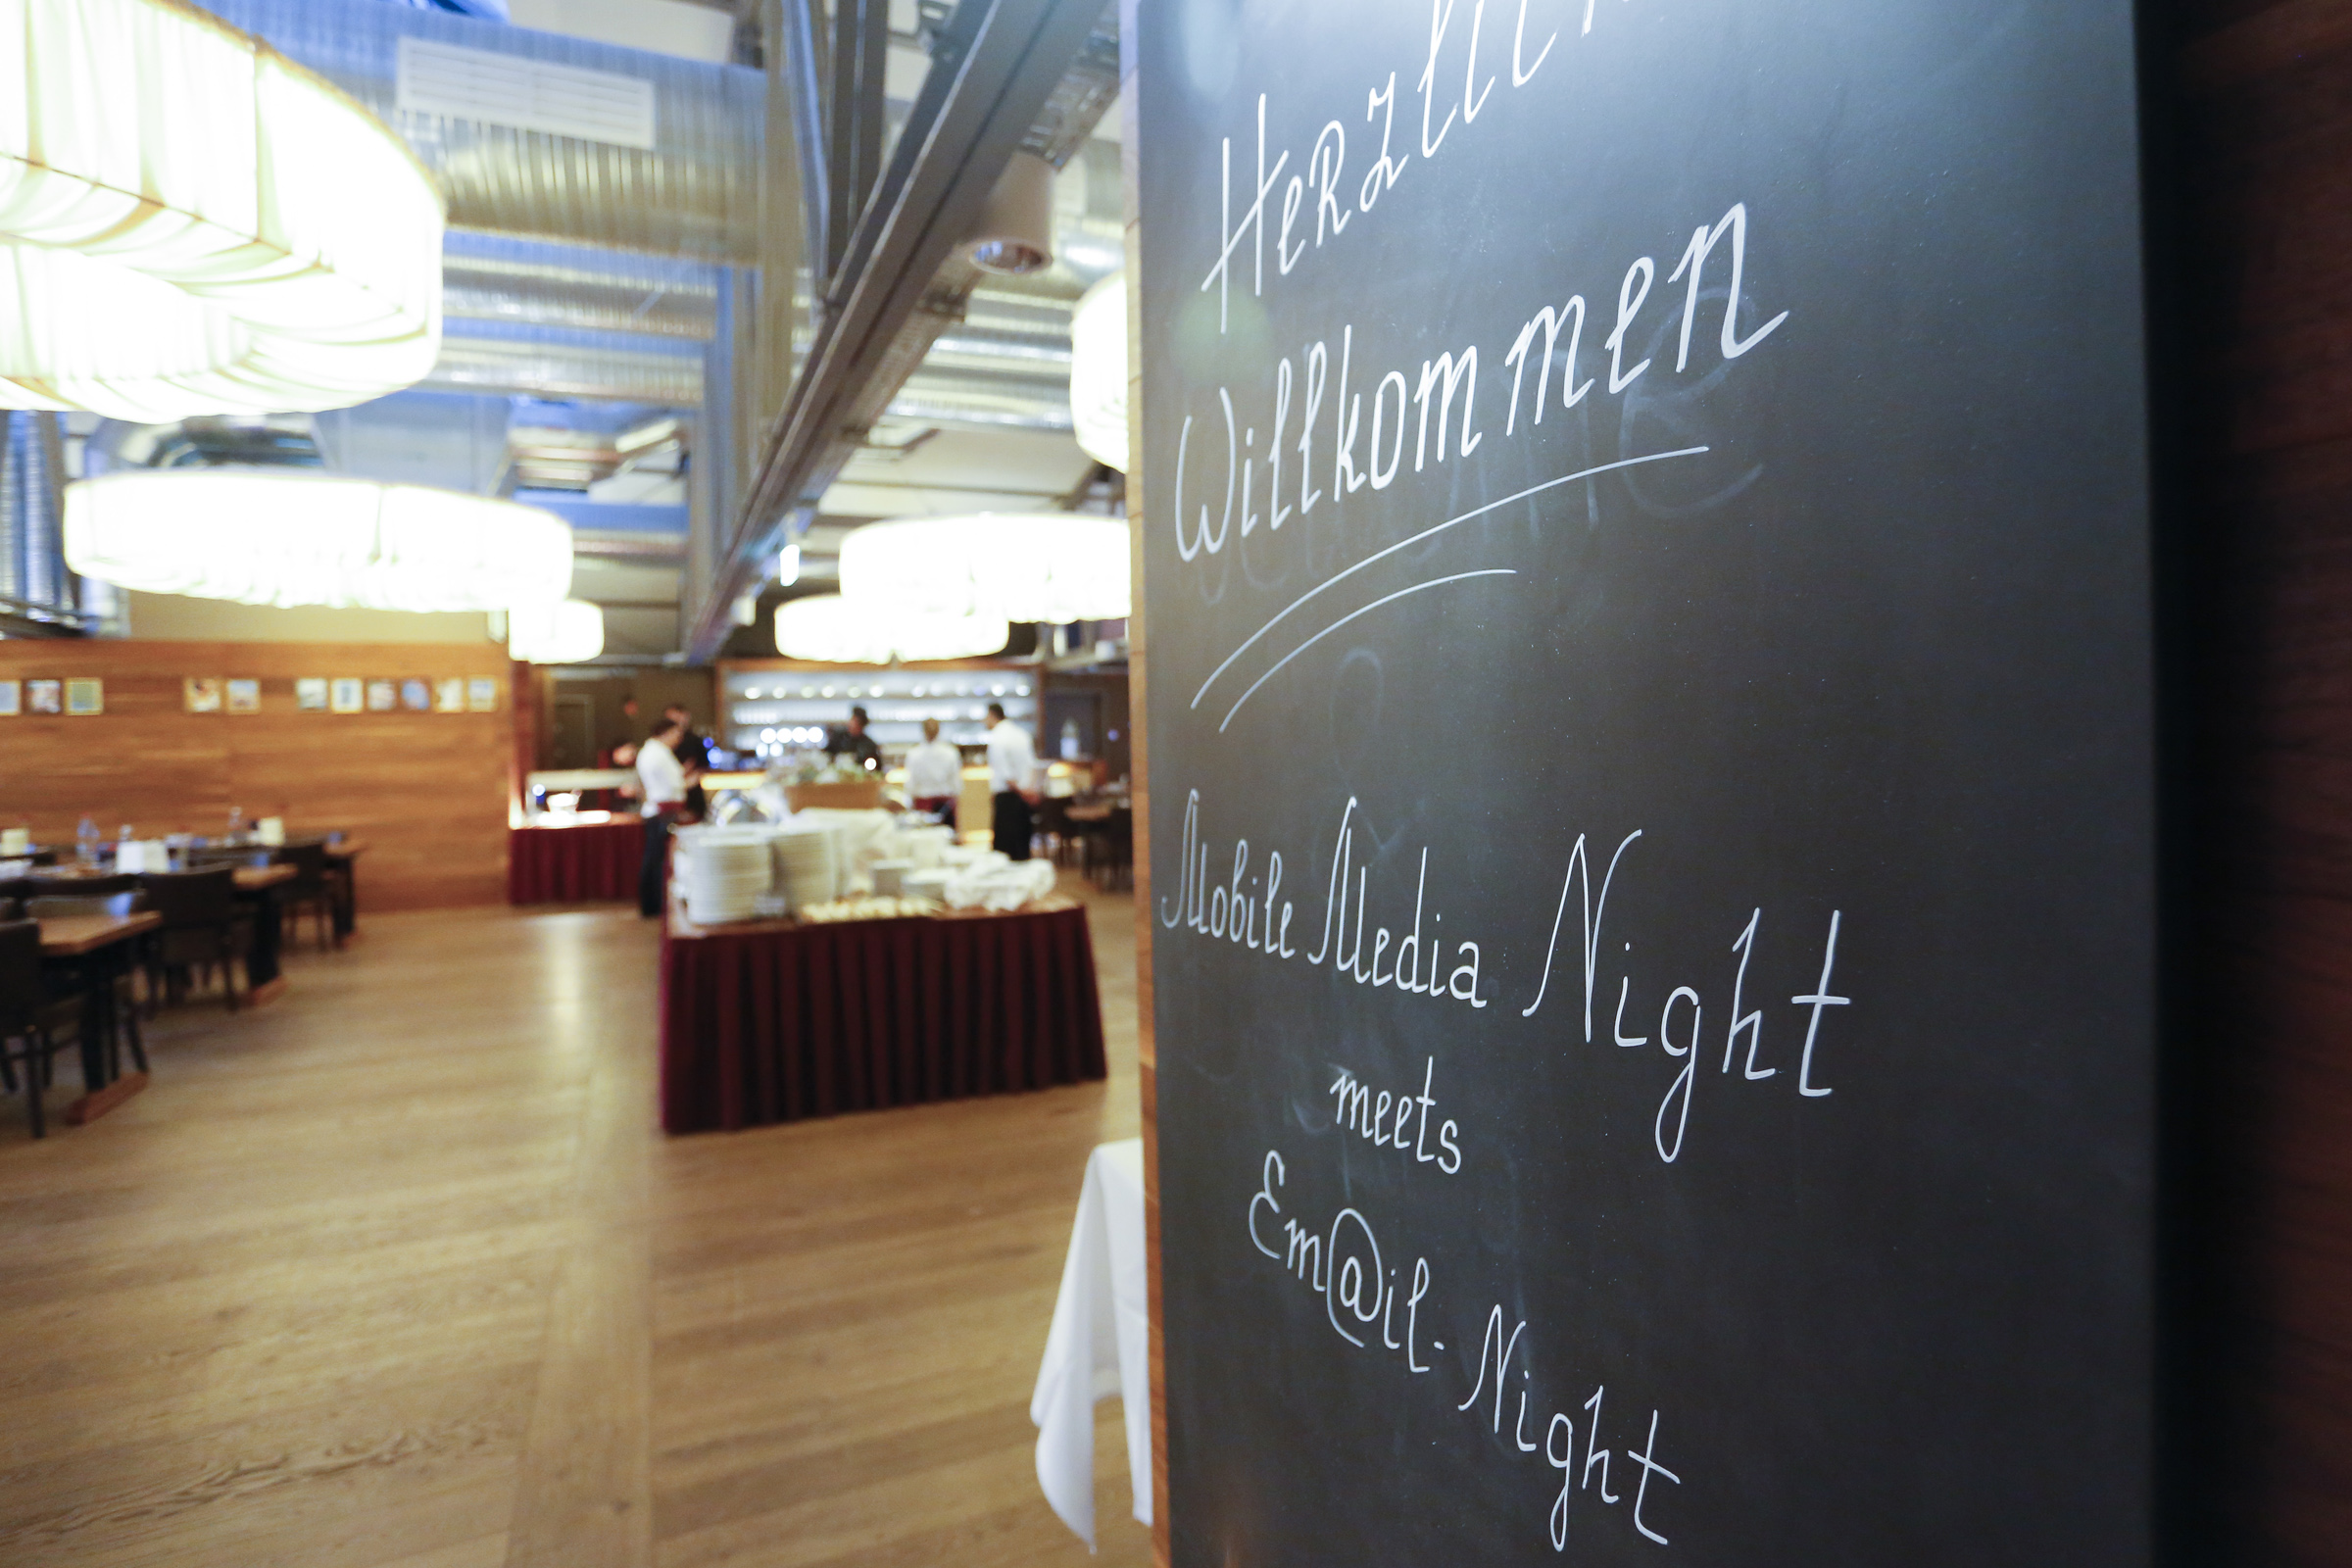 Herzlich
Willkommen
Mobile Media Night
meets
Em@il-Night